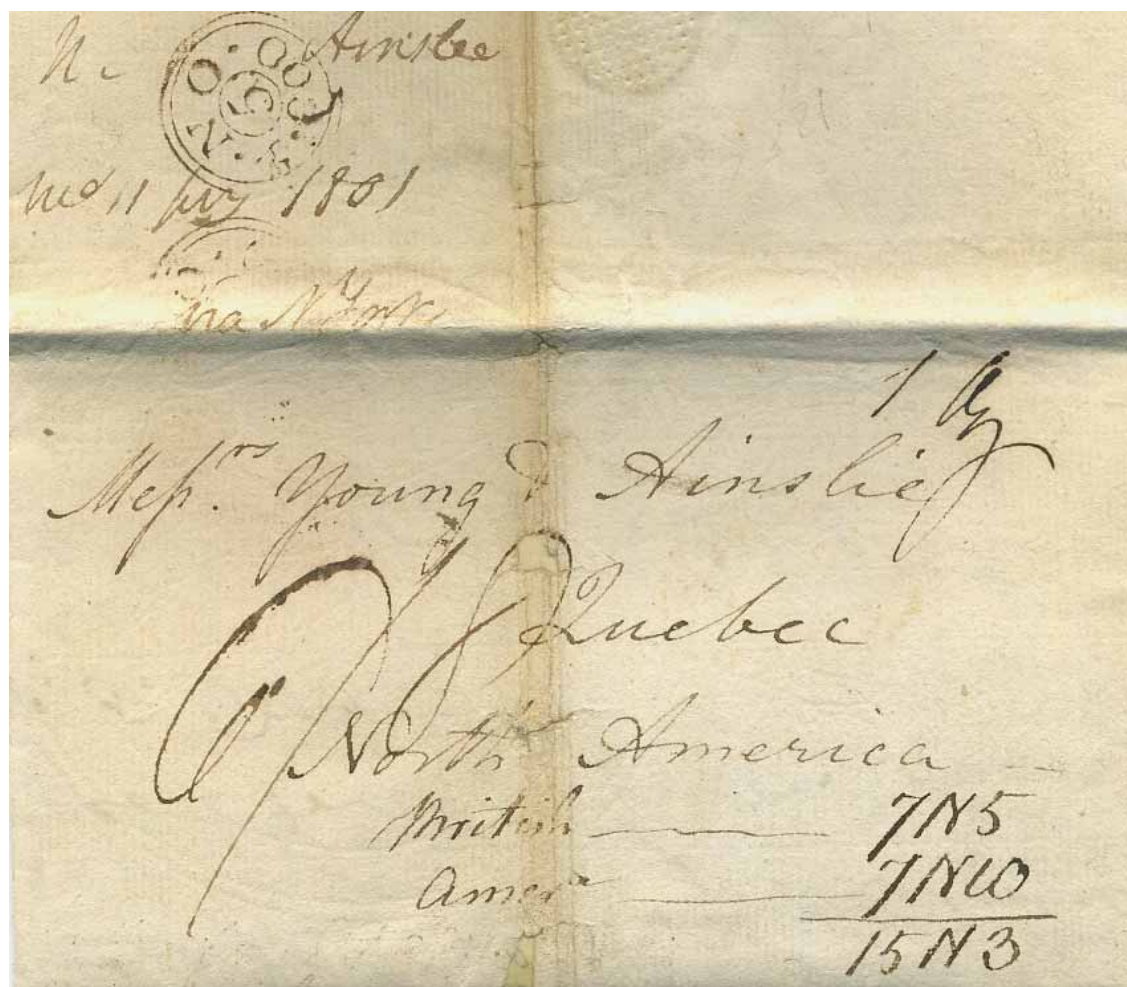 N. Ainslee
NO 5 800
11 1801
via N York
1
Messrs. Young & Ainslie
Quebec
North America
British 7N5
Amer 7N10
15N3